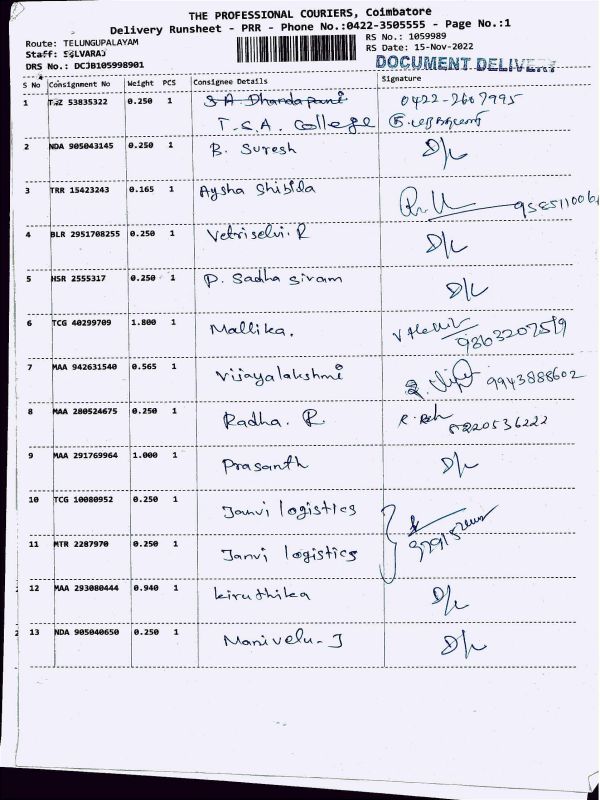 THE PROFESSIONAL COURIERS, Coimbatore
Delivery Runsheet - PRR - Phone No.:0422-3505555 - Page No.:1
Route: TELUNGUPALAYAM RS No.: 1059989
Staff: SELVARAJ RS Date: 15-Nov-2022
DRS No.: DCJB105998901 DOCUMENT DELIVERY
S No Consignment No Weight PCS Consignee Details Signature
1 53835322 0.250 1 S A Dhandapani 0422-2607995
T.S.A. College
2 NDA 905043145 0.250 1 B. Suresh D/L
3 TRR 15423243 0.165 1 Aysha Shibida
4 BLR 2951708255 0.250 1 Vetriselvi. R D/L
5 HSR 2555317 0.250 1 P. Sadha sivam D/L
6 TCG 40299709 1.800 1 Mallika. 9363207519
7 MAA 942631540 0.565 1 Vijayalakshmi 9943888602
8 MAA 280524675 0.250 1 Radha. R 8220536222
9 MAA 291769964 1.000 1 Prasanth D/L
10 TCG 10080952 0.250 1 Janvi logistics
11 MTR 2287970 0.250 1 Janvi logistics
12 MAA 293080444 0.940 1 kiruthika D/L
13 NDA 905040650 0.250 1 Manivelu-J D/L